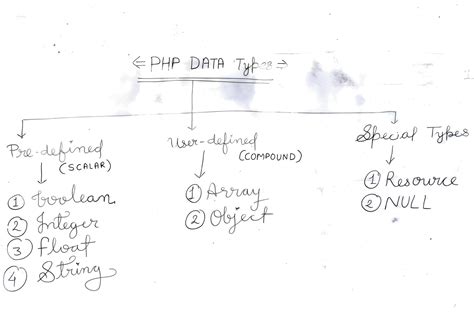 ⇐ PHP DATA Types ⇒
Pre-defined
(SCALAR)
① boolean
② Integer
③ float
④ String
User-defined
(COMPOUND)
① Array
② Object
Special Types
① Resource
② NULL